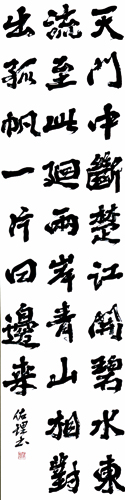 天門中斷楚江開碧水東
流至此廻兩岸青山相對
出孤帆一片日邊来
佑理书